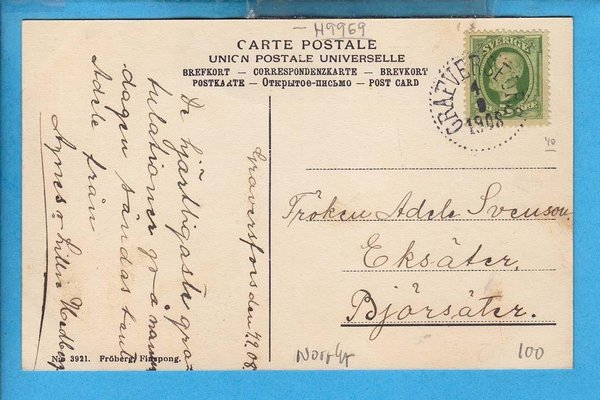 H9969
CARTE POSTALE
UNION POSTALE UNIVERSELLE
BREFKORT — CORRESPONDENZKARTE — BREVKORT
POSTKARTE — Открытое-письмо — POST CARD
SVERIGE
GRAFVERSFORS
1908
40
Graversfors den
De hjärtligaste gra-
tulationer på namns-
dagen sändas tant
Adele från
Agnes o Lillie Hedberg
Fröken Adele Svenson
Eksäter.
Björsäter.
N:o 3921. Fröberg, Finspong.
100